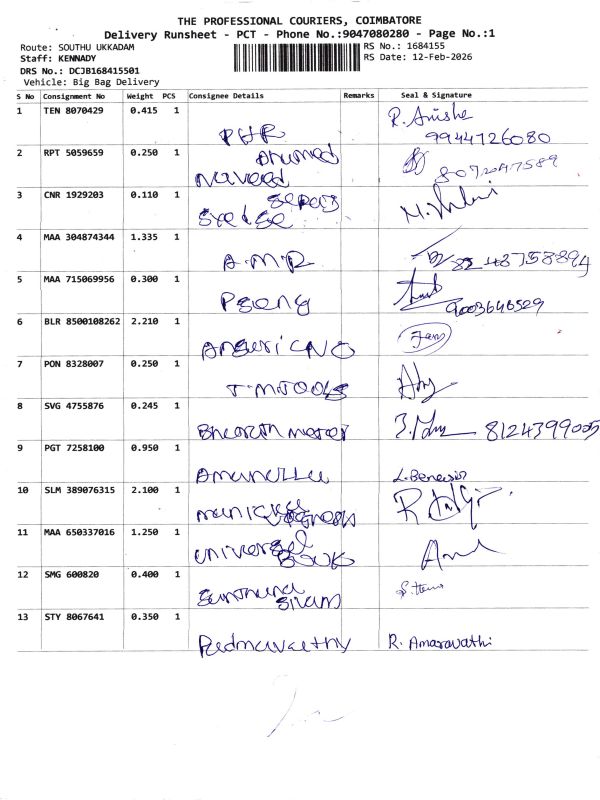 THE PROFESSIONAL COURIERS, COIMBATORE
Delivery Runsheet - PCT - Phone No.:9047080280 - Page No.:1
Route: SOUTHU UKKADAM
RS No.: 1684155
Staff: KENNADY
RS Date: 12-Feb-2026
DRS No.: DCJB168415501
Vehicle: Big Bag Delivery
S No Consignment No Weight PCS Consignee Details Remarks Seal & Signature
1 TEN 8070429 0.415 1 R. Anisha
9944726080
2 RPT 5059659 0.250 1 Ahumed
Naveed 8072047589
3 CNR 1929203 0.110 1
4 MAA 304874344 1.335 1 A.M.R
5 MAA 715069956 0.300 1 9003646529
6 BLR 8500108262 2.210 1
7 PON 8328007 0.250 1 T.M.TOOLS
8 SVG 4755876 0.245 1 Bharath motor 8124399005
9 PGT 7258100 0.950 1 Amanulla L. Benasir
10 SLM 389076315 2.100 1
11 MAA 650337016 1.250 1 universal
12 SMG 600820 0.400 1
13 STY 8067641 0.350 1 Padmavathy R. Amaravathi